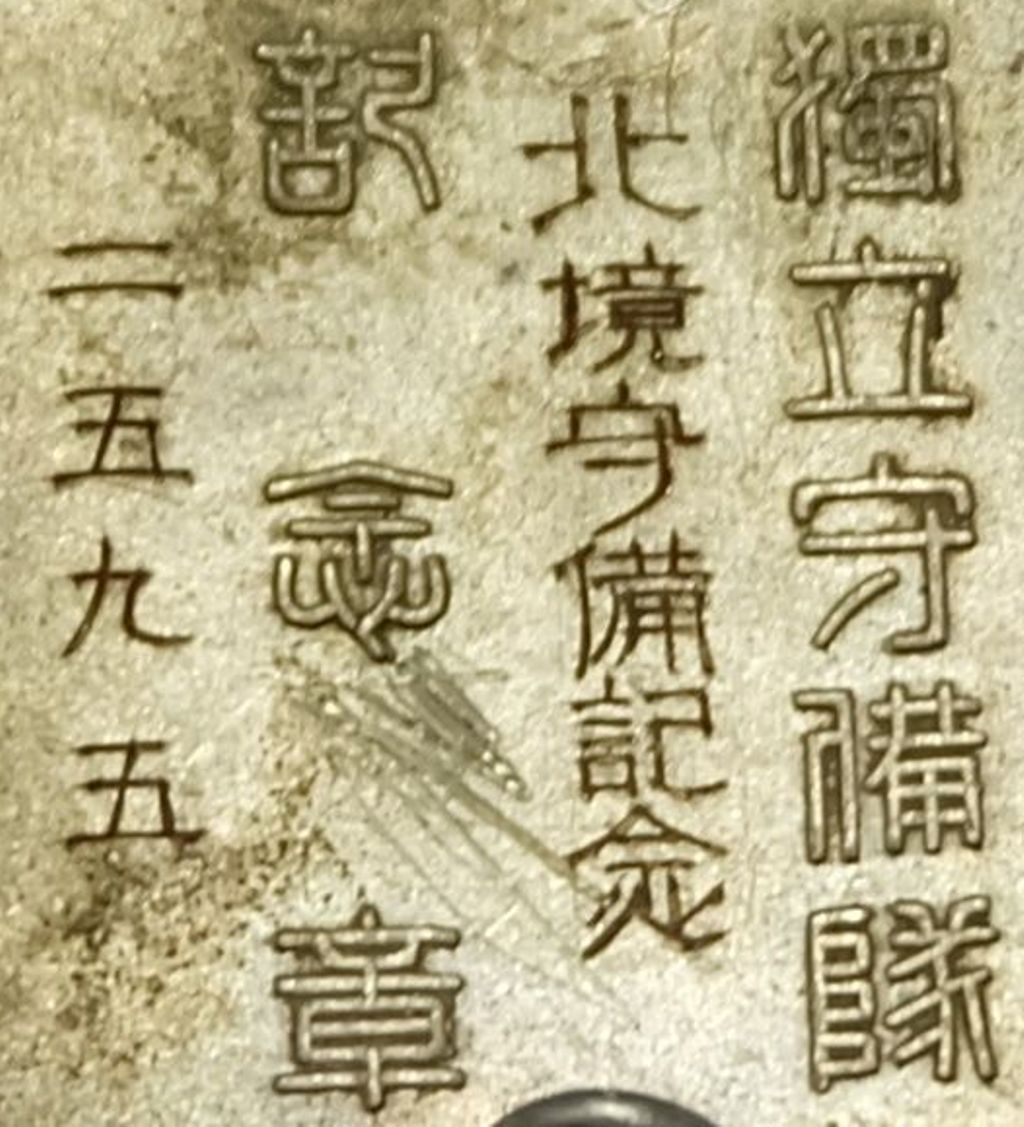 獨立守備隊
北境守備記念
記念章
二五九五